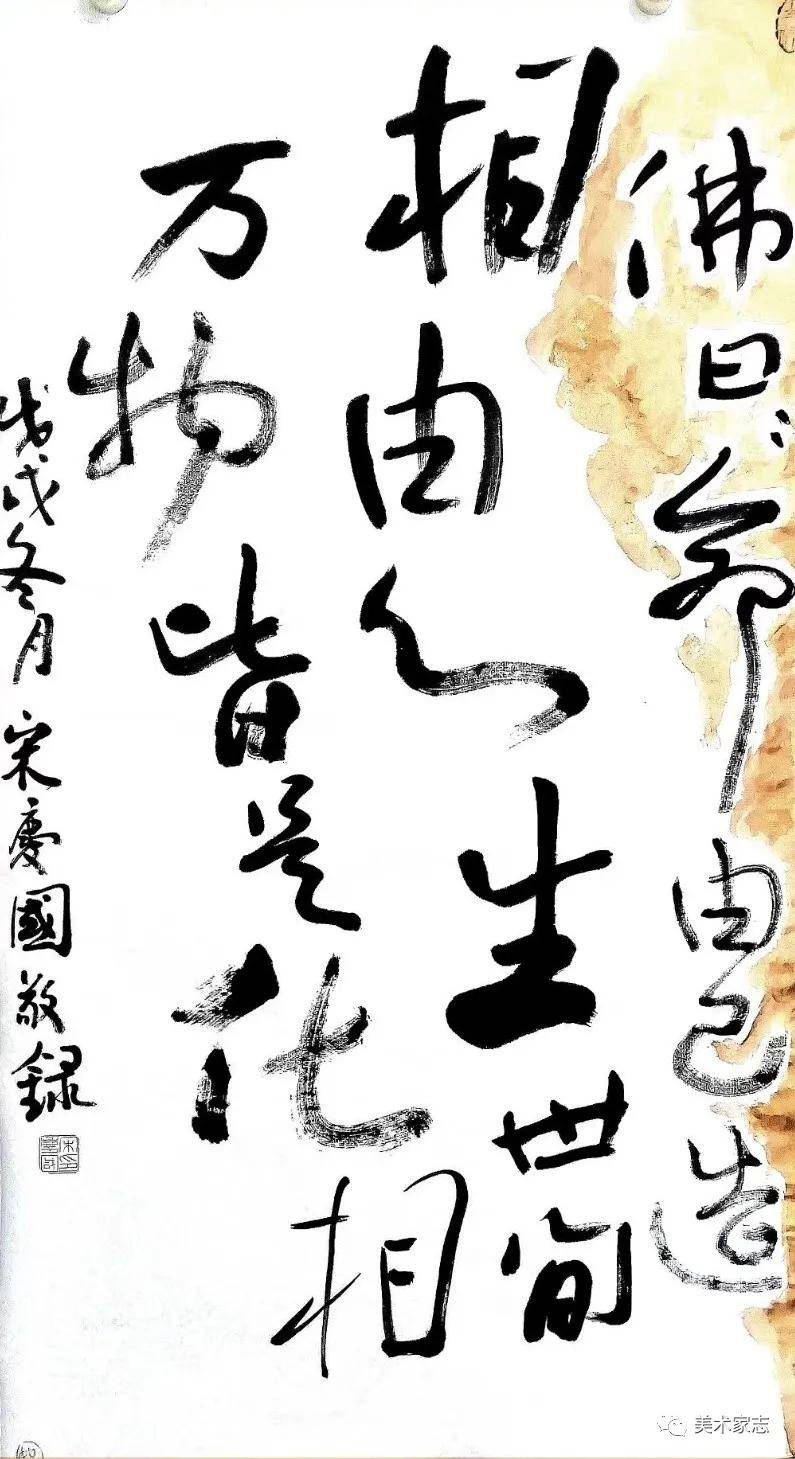 佛曰：命由己造
相由心生世间
万物皆是化相
戊戌冬月宋慶國敬録
美术家志